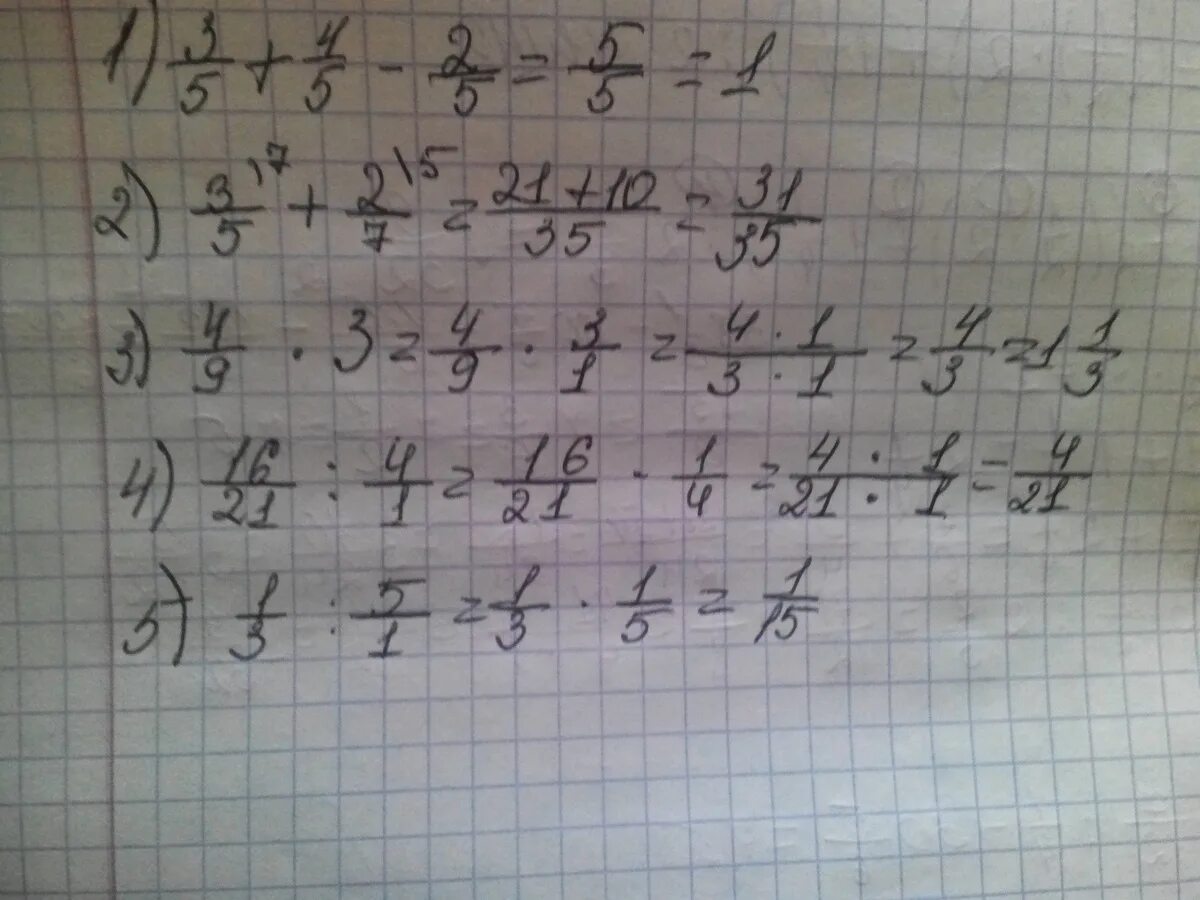 1) 3/5 + 4/5 - 2/5 = 5/5 = 1
2) 3/5 \7 + 2/7 \5 = 21+10/35 = 31/35
3) 4/9 · 3 = 4/9 · 3/1 = 4·1/3·1 = 4/3 = 1 1/3
4) 16/21 : 4/1 = 16/21 · 1/4 = 4·1/21·1 = 4/21
5) 1/3 : 5/1 = 1/3 · 1/5 = 1/15